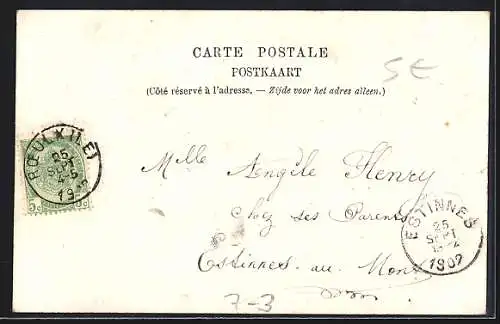 CARTE POSTALE
POSTKAART
(Côté réservé à l'adresse. — Zijde voor het adres alleen.)
5 E
RŒULX (LE)
25
SEPT
5-S
19 2
5c
Mlle Angèle Henry
Chez ses Parents
Estinnes-au-Mont
ESTINNES
25
SEPT
1902
7-3